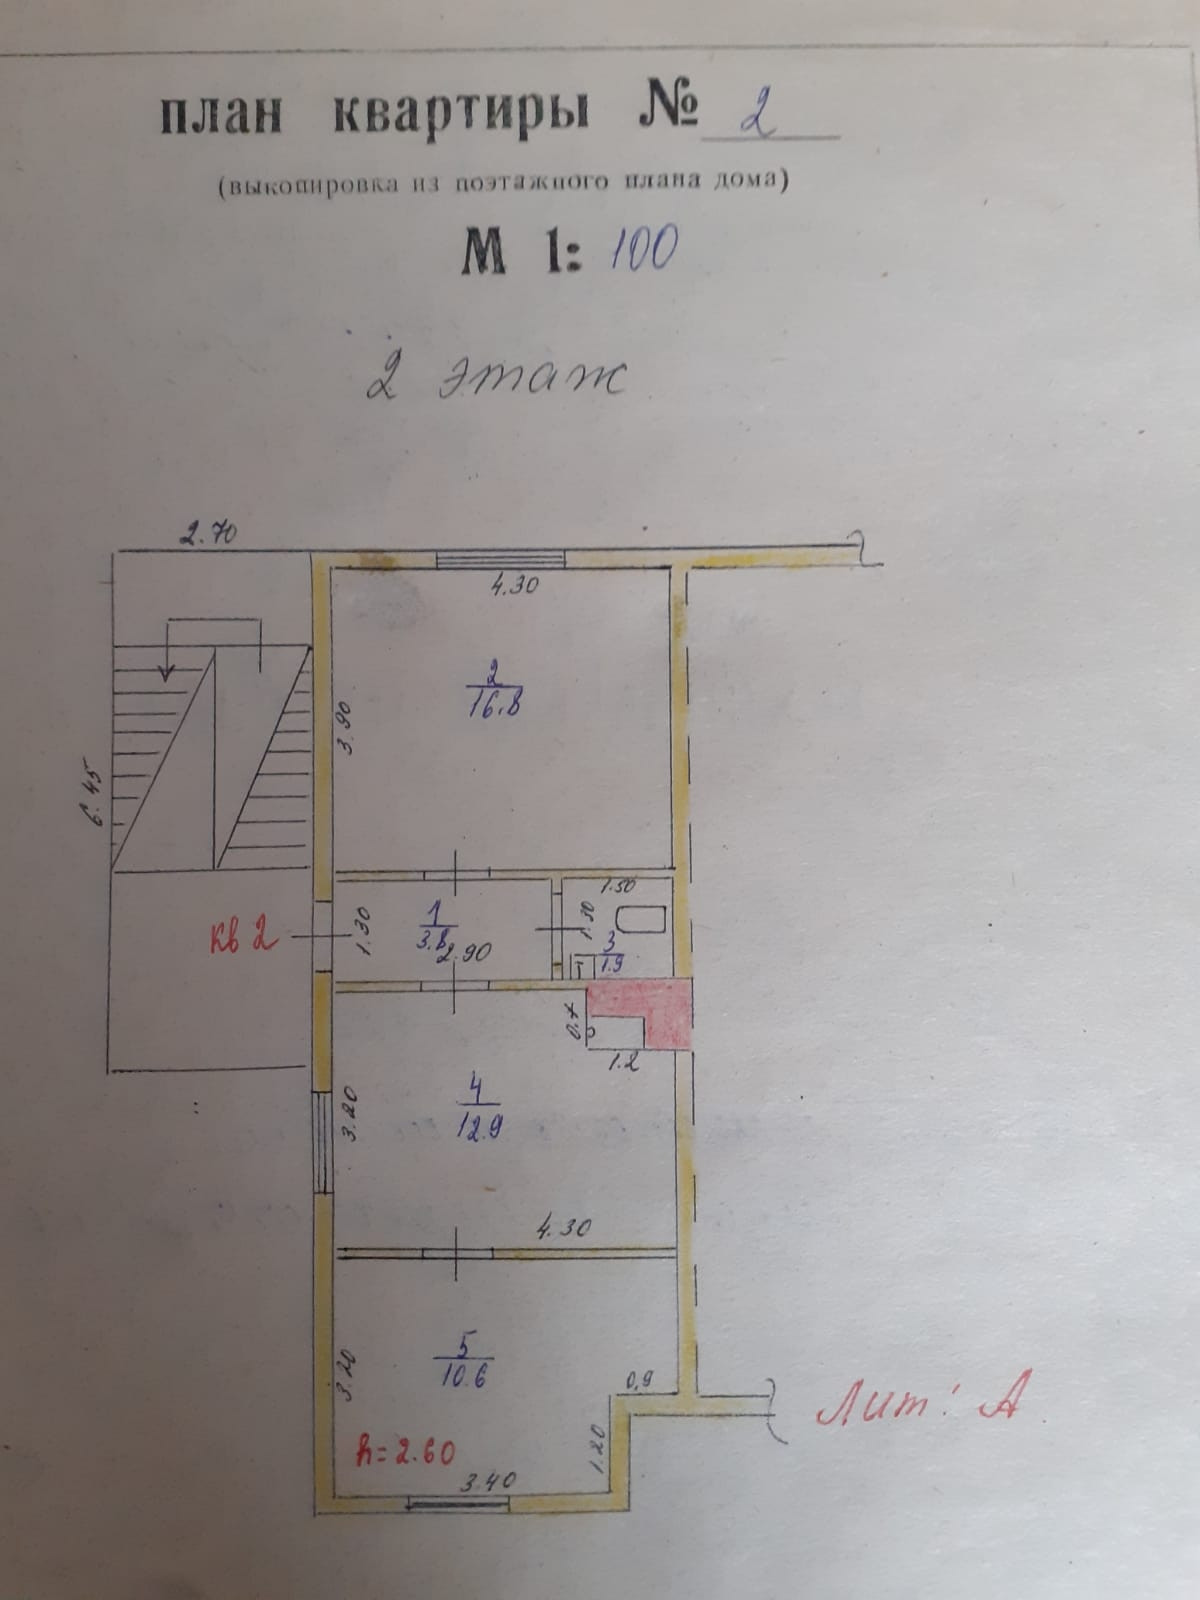 план квартиры № 2
(выкопировка из поэтажного плана дома)
М 1: 100
2 этаж
2.70
4.30
2
16.8
3.90
6.45
1.50
кв 2
1.30
1
3.8
2.90
1.30
3
1.9
0.7
1.2
4
12.9
3.20
4.30
5
10.6
3.20
0,9
Лит: А
h=2.60
1.20
3.40